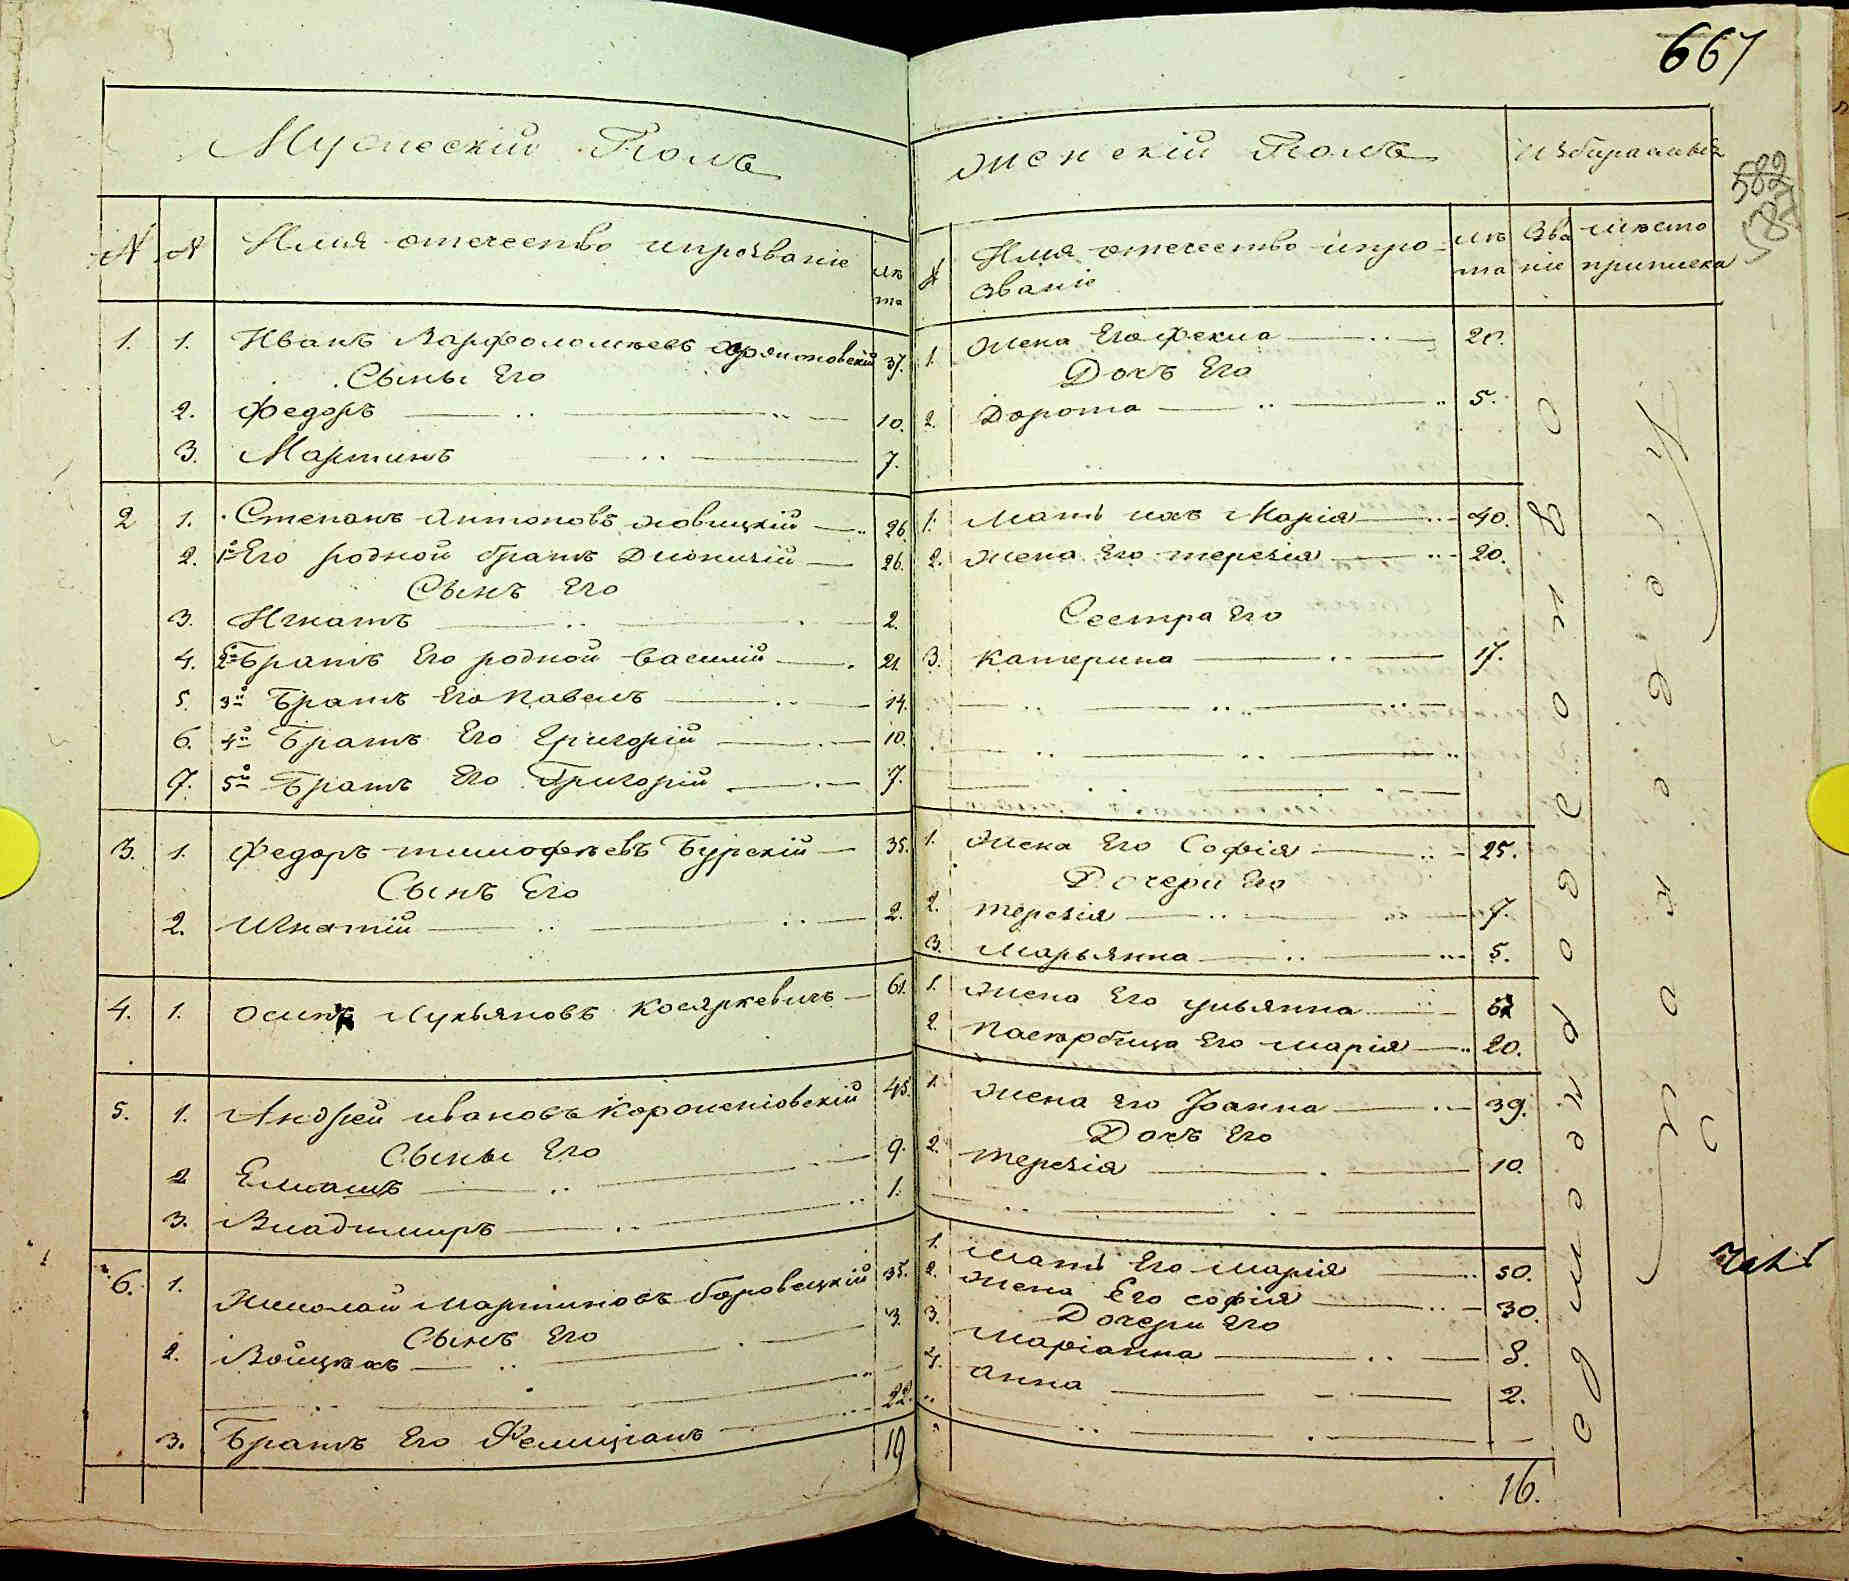 667
Мужескій Полъ
Женскій Полъ
Избираемый
582
№ № Имя отечество ипрозваніе лѣта
№ Имя отечество ипрозваніе лѣта Званіе мѣсто приписка
1. 1. Иванъ Варфоломѣевъ 37.
Сыны Его
2. Федоръ 10.
3. Мартинъ 7.
2 1. Степанъ Антоновъ новицкій 26
2. 1й Его родной братъ Дионизій 26.
Сынъ Его
3. Игнатъ 2.
4. 2й Братъ Его родной Василій 21.
5. 3й Братъ Его Павелъ 14.
6. 4й Братъ Его Григорій 10.
7. 5й Братъ Его Григорій 7.
3. 1. Федоръ тимофѣевъ Бурскій 35.
Сынъ Его
2. Игнатій 2.
4. 1. Осипъ Лукьяновъ Косяркевичъ 61.
5. 1. Андрей ивановъ 45.
Сыны Его
2 Елиашъ 9.
3. Владимиръ 1.
6. 1. Николай мартиновъ боровецкій 35.
Сынъ Его
2. Войцѣхъ 3.
3. Братъ Его Фелиціанъ 22.
19
1. Жена Его Фекла 20.
Дочь Его
2. Дорота 5.
1. Мать ихъ Марія 40.
2. Жена Его терезія 20.
Сестра Его
3. Катерина 17.
1. Жена Его Софія 25.
Дочери Его
2. терезія 7.
3. Марьянна 5.
1. Жена Его ульянна
2. Пасѣрбица Его марія 20.
1. Жена Его Іоанна 39.
Дочь Его
2. терезія 10.
1. Мать Его марія 50.
2. Жена Его софія 30.
Дочери Его
3. Маріанна 8.
4. Анна 2.
16.
Однодворческое